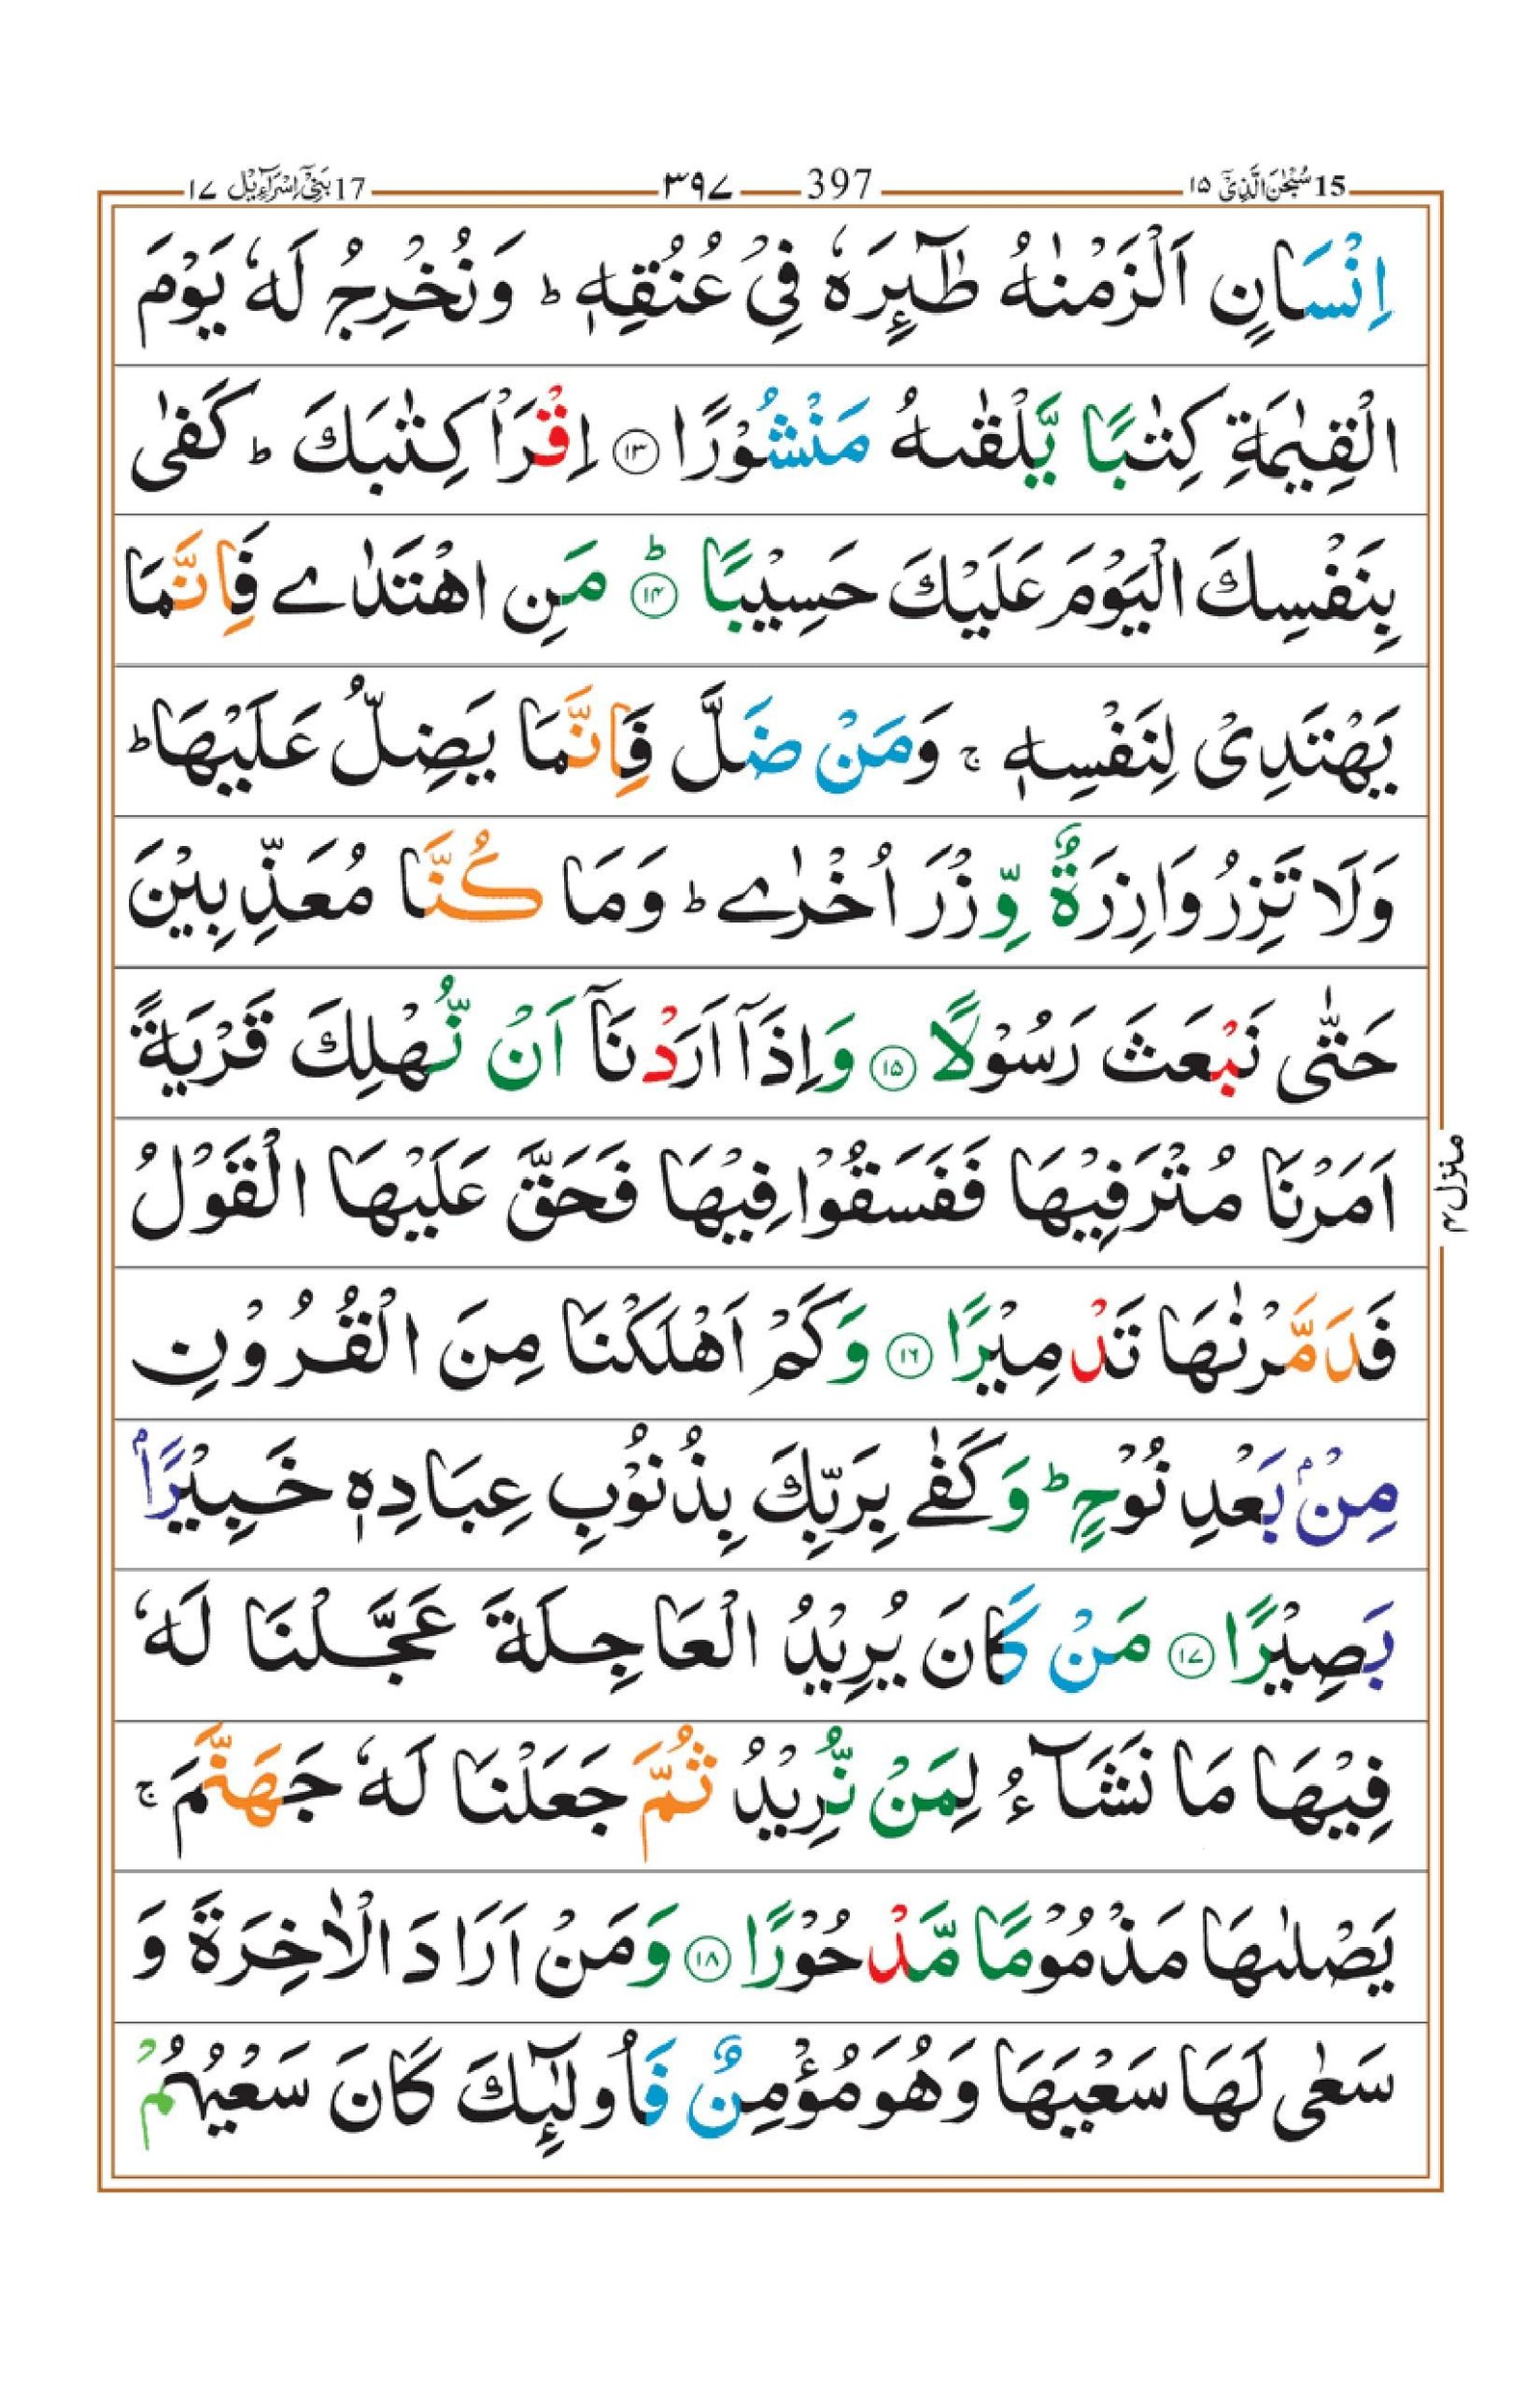 15 سُبْحٰنَ الَّذِیْۤ ۱۵
397 ۳۹۷
17 بَنِیْۤ اِسْرَآءِیْل ۱۷
اِنْسَانٍ اَلْزَمْنٰهُ طٰٓئِرَهٗ فِیْ عُنُقِهٖ ؕ وَنُخْرِجُ لَهٗ یَوْمَ
الْقِیٰمَةِ كِتٰبًا یَّلْقٰىهُ مَنْشُوْرًا ۝۱۳ اِقْرَاْ كِتٰبَكَ ؕ كَفٰی
بِنَفْسِكَ الْیَوْمَ عَلَیْكَ حَسِیْبًا ؕ۝۱۴ مَنِ اهْتَدٰے فَاِنَّمَا
یَهْتَدِیْ لِنَفْسِهٖ ۚ وَمَنْ ضَلَّ فَاِنَّمَا یَضِلُّ عَلَیْهَا ؕ
وَلَا تَزِرُ وَازِرَةٌ وِّزْرَ اُخْرٰے ؕ وَمَا كُنَّا مُعَذِّبِیْنَ
حَتّٰی نَبْعَثَ رَسُوْلًا ۝۱۵ وَاِذَاۤ اَرَدْنَاۤ اَنْ نُّهْلِكَ قَرْیَةً
اَمَرْنَا مُتْرَفِیْهَا فَفَسَقُوْا فِیْهَا فَحَقَّ عَلَیْهَا الْقَوْلُ
فَدَمَّرْنٰهَا تَدْمِیْرًا ۝۱۶ وَكَمْ اَهْلَكْنَا مِنَ الْقُرُوْنِ
مِنْۢ بَعْدِ نُوْحٍ ؕ وَكَفٰے بِرَبِّكَ بِذُنُوْبِ عِبَادِهٖ خَبِیْرًۢا
بَصِیْرًا ۝۱۷ مَنْ كَانَ یُرِیْدُ الْعَاجِلَةَ عَجَّلْنَا لَهٗ
فِیْهَا مَا نَشَآءُ لِمَنْ نُّرِیْدُ ثُمَّ جَعَلْنَا لَهٗ جَهَنَّمَ ۚ
یَصْلٰىهَا مَذْمُوْمًا مَّدْحُوْرًا ۝۱۸ وَمَنْ اَرَادَ الْاٰخِرَةَ وَ
سَعٰی لَهَا سَعْیَهَا وَهُوَ مُؤْمِنٌ فَاُولٰٓئِكَ كَانَ سَعْیُهُمْ
منزل ۴